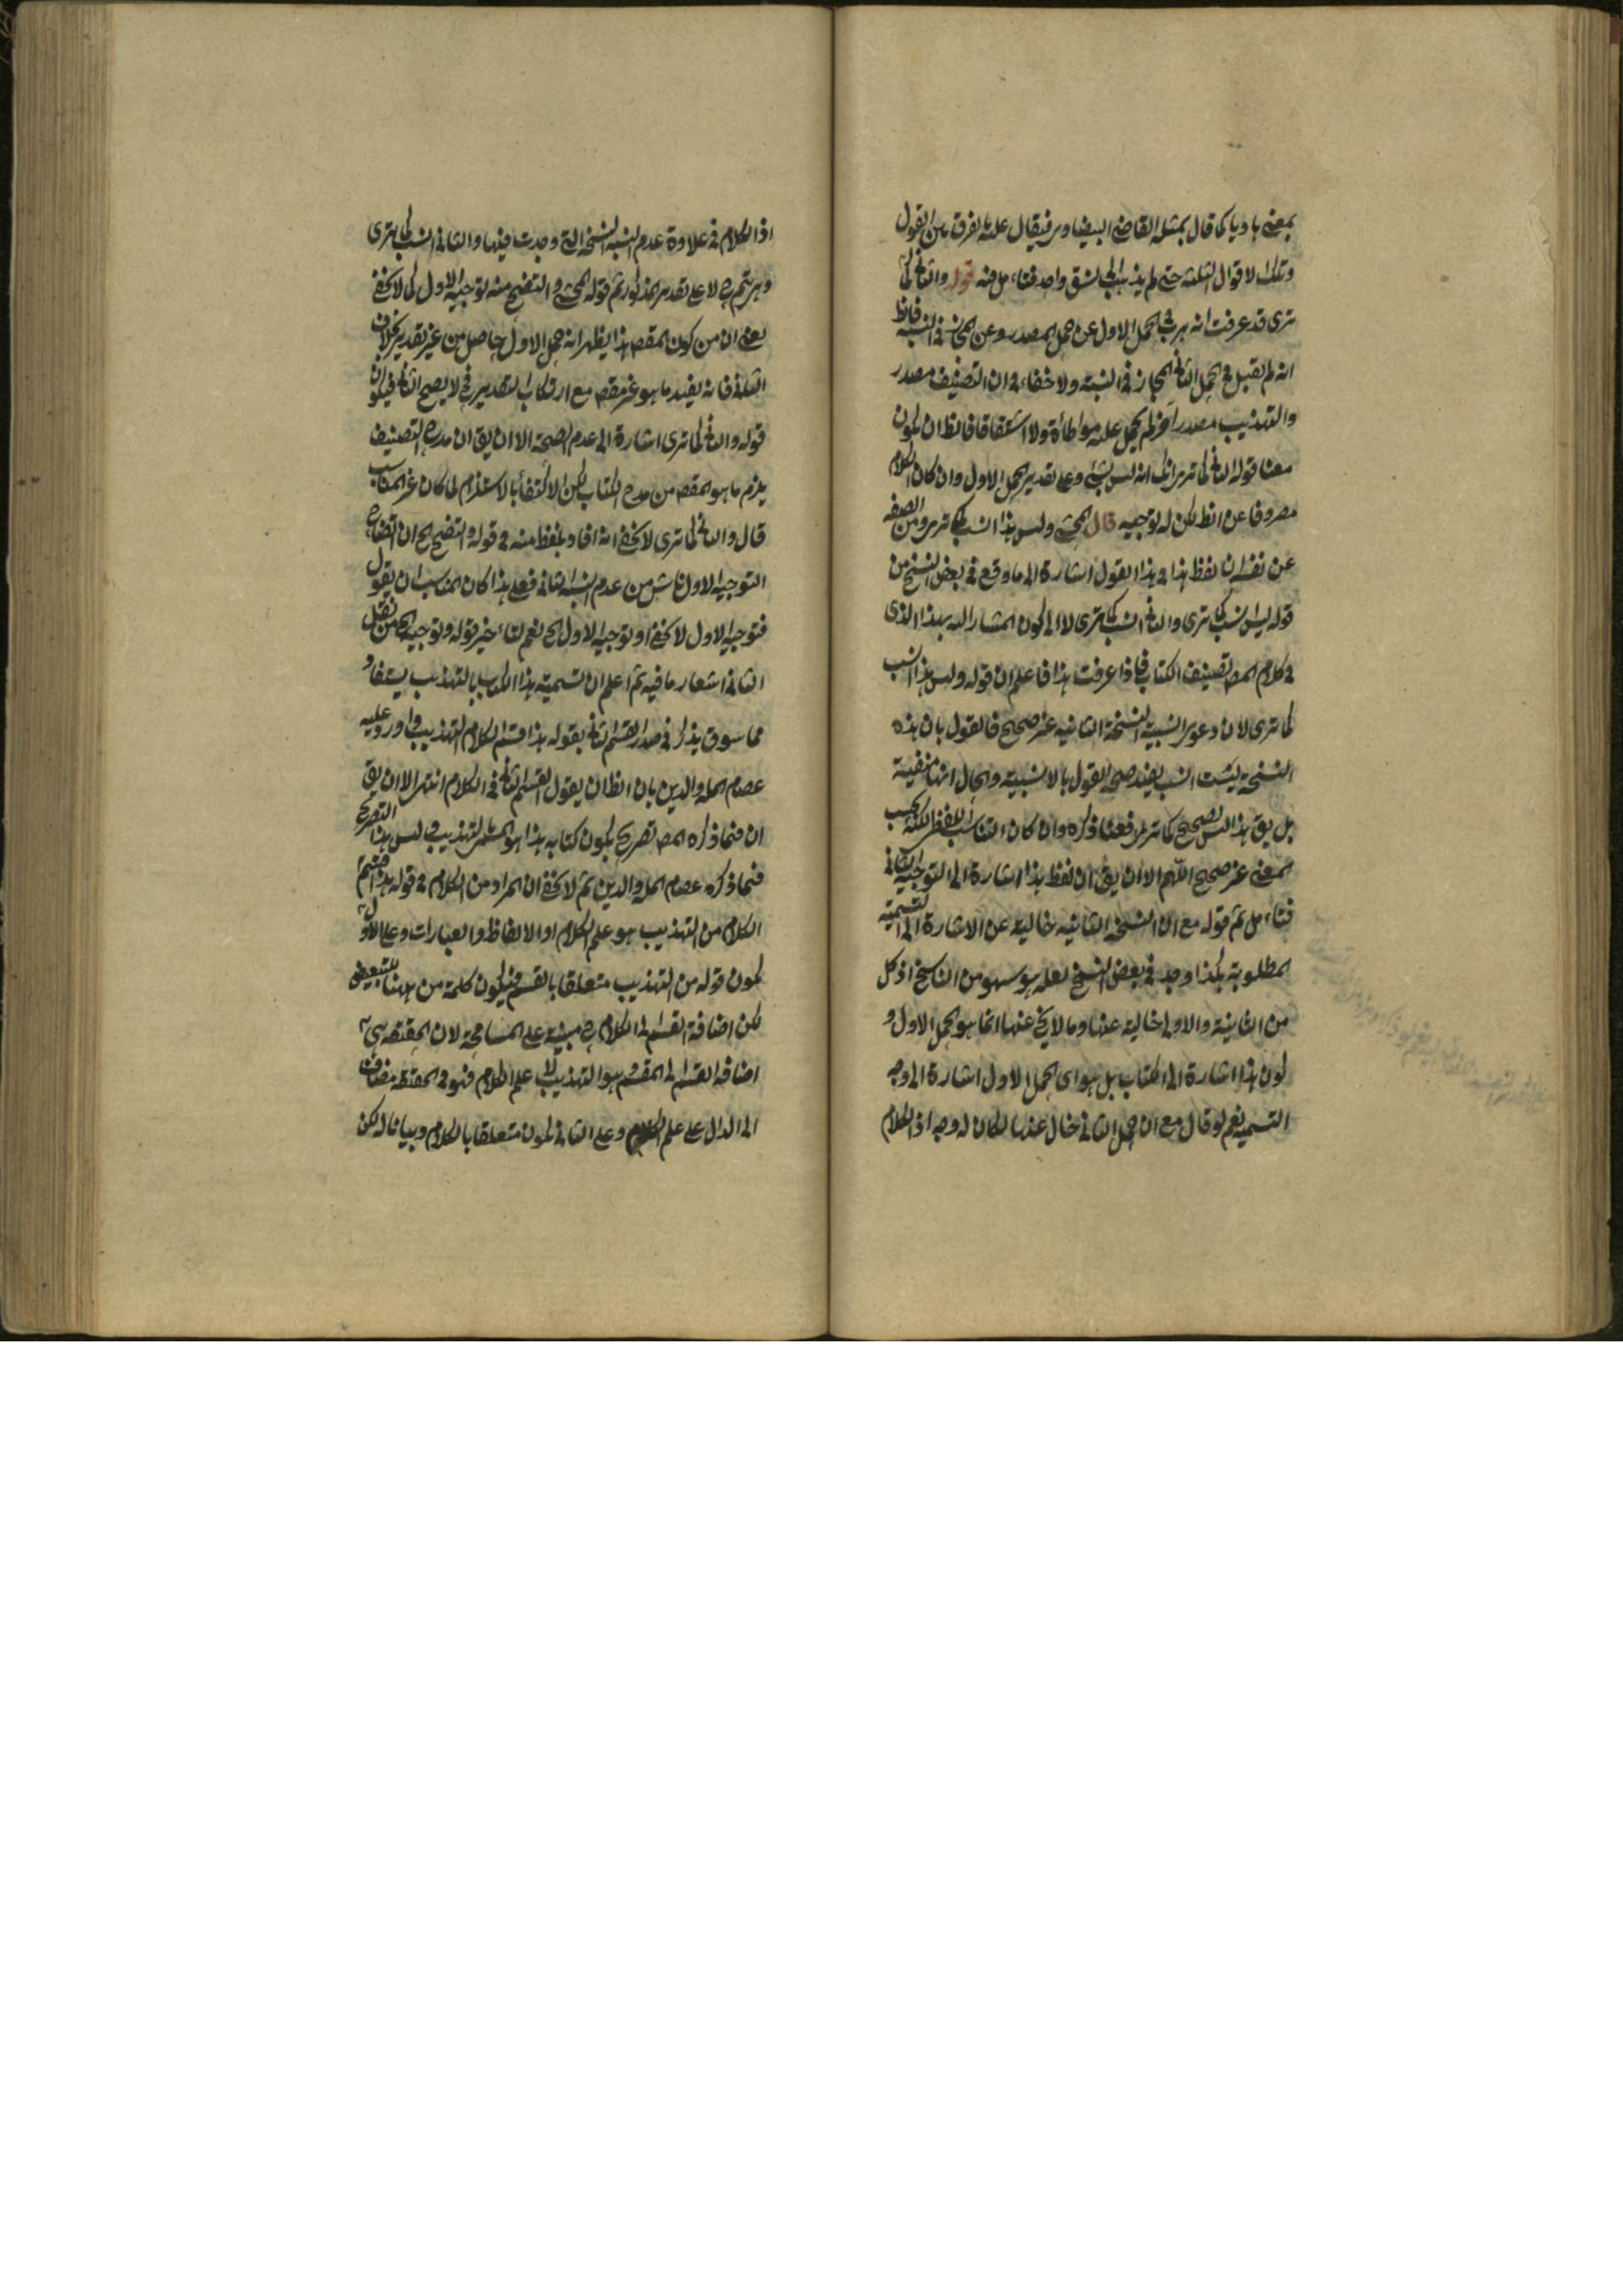 بمعنى هاديا كما قال بمثله القاضي البيضاوي فيقال عليه لفرق بين القول
وتلك الاقوال الثلثة حتى لم يذهب الى لشق واحد فتاءمل فيه قوله والثاني كما
ترى قد عرفت انه هرب في الحمل الاول عن حمل المصدر وعن المجاز في النسبة فالظ
انه لم يقبل في الحمل الثاني المجاز في النسبة ولا خفاء في ان التصنيف مصدر
والتهذيب مصدر اخر لم يحمل عليه مواطأة ولا اشتقاقا فالظ ان يكون
معنا قوله الثاني كما ترى انه ليس بشئ وعلى تقدير الحمل الاول وان كان الكلام
مصروفا عن الظ لكن له توجيه قال المحشي وليس هذا انسب كما ترى ومن الصيغه
عن نفسه ان لفظ هذا في هذا القول اشارة الى ما وقع في بعض النسخ من
قوله ليس انسب كما ترى والثاني انسب كما ترى لا الى كون المشار اليه بهذا الذى
في كلام المص تصنيف الكتاب فاذا عرفت هذا فاعلم ان قوله وليس هذا انسب
كما ترى لان دعوى انسبية النسخة الثانيه غير صحيح فالقول بان هذه
النسخة ليست انسب يفيد صحة القول بالانسبية والحال انها منفية
بل يق هذا ليس بصحيح كما ترى فعنا ذكره وان كان التناسب اللفظي لكنه بحسب
المعنى غير صحيح اللهم الا ان يق ان لفظ هذا اشارة الى التوجيه الثاني
فتاءمل ثم قوله مع ان النسخه الثانيه خالية عن الاشارة الى التسمية
المطلوبة هكذا وجد في بعض النسخ لعله سهو من الناسخ اذ كل
من الثانية والاولى خالية عنها وما لا يخ عنها انما هو الحمل الاول و
كون هذا اشارة الى الكتاب بل هو اى الحمل الاول اشارة الى وجه
التسمية نعم لو قال مع ان الحمل الثاني خال عنها لكان له وجه اذ الكلام
اذ الكلام في علاوة عدم انسبية النسخة التي وجدت فيها والثاني انسب كما ترى
لا على تقدير المذكور ثم قوله المحشي والتفصيح منه توجيه الاول كما لا يخفى
يعنى ان من كون المقص هذا يظهر انه حمل الاول حاصل من غير تقدير بخلاف
الثاني فانه يفيد ما هو غير مقص مع ارتكاب التقدير لا يصح الثاني فيكون
قوله والثاني كما ترى اشارة الى عدم الصحة الا ان يق ان مدح التصنيف
يلزم ما هو المقص من مدح الكتاب لكن الاكتفاء بالاستلزام لما كان غير المناسب
قال والثاني كما ترى لا يخفى انه افاد بلفظ منه في قوله والتضح الح ان اتضاح
التوجيه الاول ناش من عدم انسبية الثاني فعلى هذا كان المناسب ان يقول
فتوجيه الاول لا يخفى او توجيه الاول الح نعم لتاءخير قوله وتوجيه الح من نقل
الثاني اشعار ما فيه ثم اعلم ان تسمية هذا الكتاب بالتهذيب يستفاد
مما سوق يذكر في صدر القسم الثاني بقوله هذا قسم الكلام التهذيب واورد عليه
عصام الملة والدين بان الظ ان يقول القسم الثاني في الكلام انتهى الا ان يق
ان فيما ذكره المص تصريح بكون كتابه هذا هو المسمى بالتهذيب وليس هذا التصريح
فيما ذكره عصام الملة والدين ثم لا يخفى ان المراد من الكلام في قوله هذا قسم
الكلام من التهذيب هو علم الكلام او الالفاظ والعبارات وعلى الاول
يكون قوله من التهذيب متعلقا بالقسم فيكون كلمة من ههنا للتبعيض
لكن اضافة القسم الى الكلام مبنية على المسامحة لان الحقيقة هي
اضافة القسم الى المقسم وهو التهذيب لا علم الكلام فهو في الحقيقة مضاف
الى الدال على علم الكلام وعلى الثاني يكون متعلقا بالكلام وبيانا له لكن